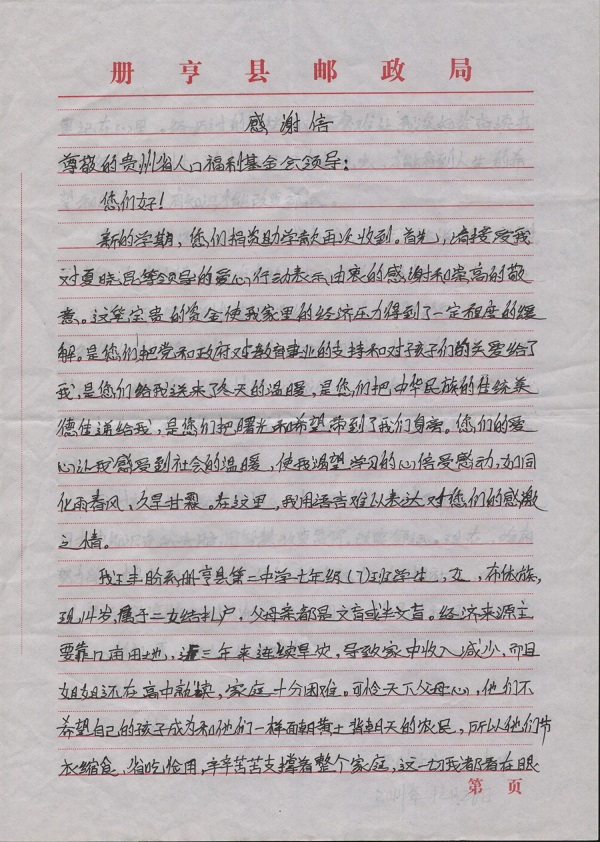 册亨县邮政局
感谢信
尊敬的贵州省人口福利基金会领导：
您们好！
新的学期，您们捐资助学款再次收到。首先，请接受我
对夏晓混等领导的爱心行动表示由衷的感谢和崇高的敬
意。这笔宝贵的资金使我家里的经济压力得到了一定程度的缓
解。是您们把党和政府对教育事业的支持和对孩子们的关爱给了
我，是您们给我送来了冬天的温暖，是您们把中华民族的传统美
德传递给我，是您们把曙光和希望带到了我们身旁。您们的爱
心让我感受到社会的温暖，使我渴望学习的心倍受感动，如同
化雨春风，久旱甘霖。在这里，我用语言难以表达对您们的感激
之情。
我王丰盼系册亨县第二中学七年级（7）班学生，女，布依族，
现14岁，属于二女结扎户，父母亲都是文盲或半文盲。经济来源主
要靠几亩田地，近三年来连续旱灾，导致家中收入减少，而且
姐姐还在高中就读，家庭十分困难。可怜天下父母心，他们不
希望自己的孩子成为和他们一样面朝黄土背朝天的农民，所以他们节
衣缩食，省吃俭用，辛辛苦苦支撑着整个家庭，这一切我都看在眼
第 页